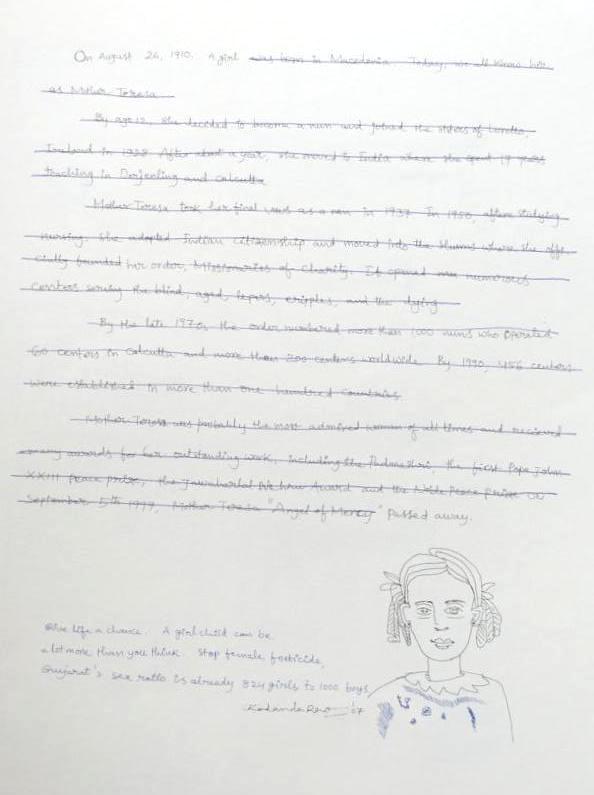 On August 26, 1910. A girl was born in Macedonia. Today, we all know her
as Mother Teresa
By age 12, she decided to become a nun and joined the sisters of Loretto,
Ireland in 1928. After about a year, she moved to India where she spent 17 years
teaching in Darjeeling and Calcutta
Mother Teresa took her final vows as a nun in 1937. In 1950, after studying
nursing. She adopted Indian citizenship and moved into the slums where she offi
cially founded her order, Missionaries of Charity. It opened numerous
centers serving the blind, aged, lepers, cripples, and the dying
By the late 1970s, the order numbered more than 1000 nuns who operated
60 centers in Calcutta and more than 200 centers worldwide. By 1990, 456 centers
were established in more than one hundred countries
Mother Teresa was probably the most admired woman of all times and recieved
many awards for her outstanding work, including the Padmashri, the first Pope John
XXIII Peace prize, the Jawaharlal Nehru Award and the Noble Peace Prize. On
September 5th 1997, Mother Teresa "Angel of Mercy" passed away.
Give life a chance. A girl child can be
a lot more than you think. Stop female foeticide,
Gujarat's sex ratio is already 824 girls to 1000 boys
'07